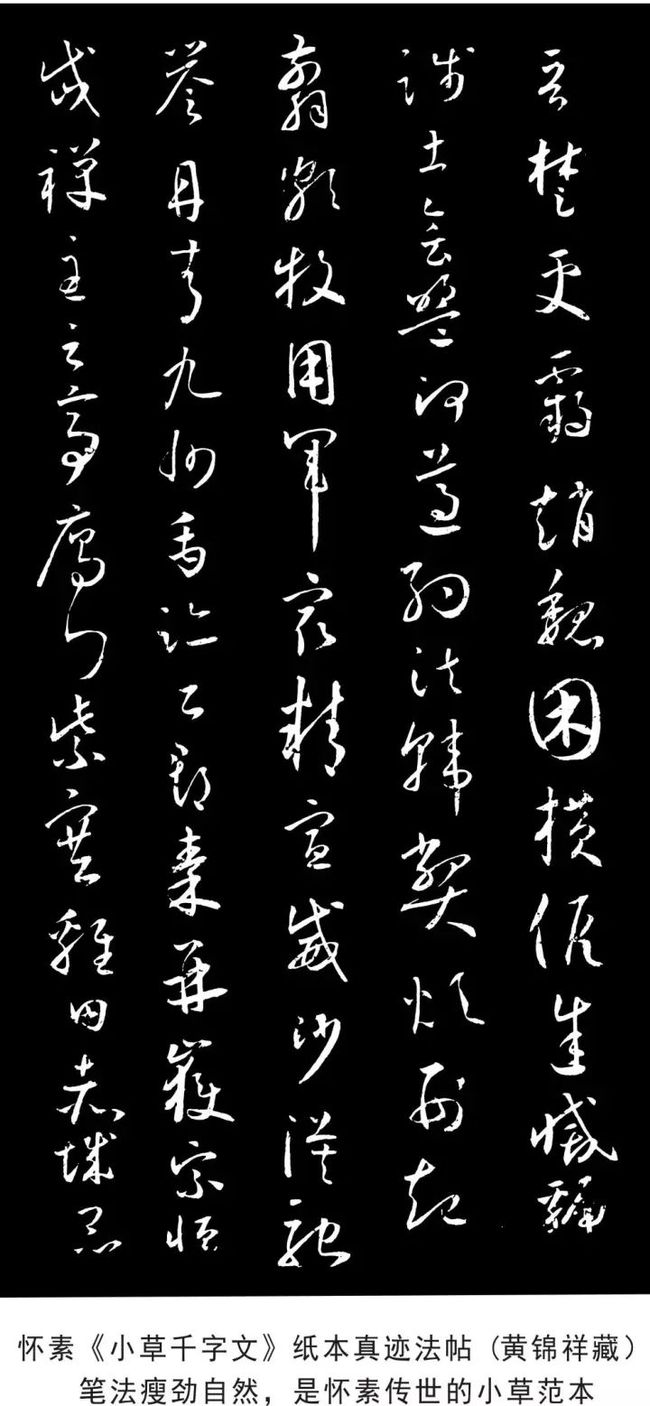 晉楚更霸趙魏困横假途滅虢
踐土會盟何遵約法韓弊煩刑起
翦頗牧用軍最精宣威沙漠馳
譽丹青九州禹跡百郡秦并嶽宗恒
岱禪主云亭鴈門紫塞雞田赤城昆
怀素《小草千字文》纸本真迹法帖（黄锦祥藏）
笔法瘦劲自然，是怀素传世的小草范本